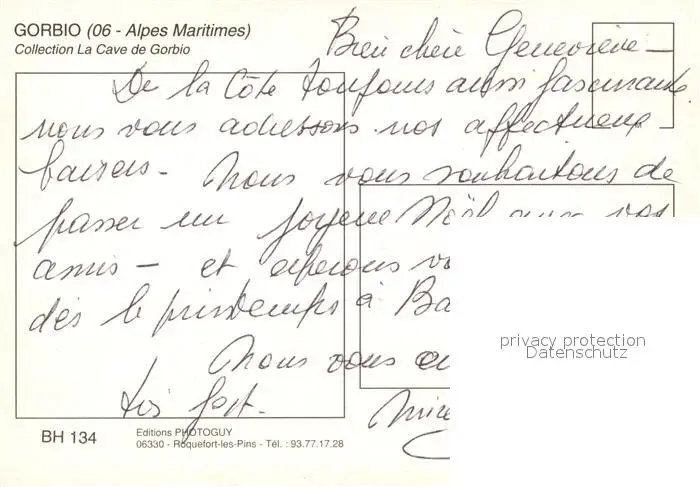 GORBIO (06 - Alpes Maritimes)
Collection La Cave de Gorbio
Bien chère Geneviève —
De la Côte toujours aussi fascinante
nous vous adressons nos affectueux
baisers - Nous vous souhaitons de
passer un joyeux Noël avec vos
amis - et espérons
dès le printemps à
Nous vous
très fort.
BH 134
Editions PHOTOGUY
06330 - Roquefort-les-Pins - Tél. : 93.77.17.28
privacy protection
Datenschutz